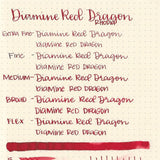 Diamine Red Dragon
Extra Fine - Diamine Red Dragon
Diamine Red Dragon
Fine - Diamine Red Dragon
Diamine Red Dragon
Medium - Diamine Red Dragon
Diamine Red Dragon
Broad - Diamine Red Dragon
Diamine Red Dragon
Flex - Diamine Red Dragon
Diamine Red Dragon